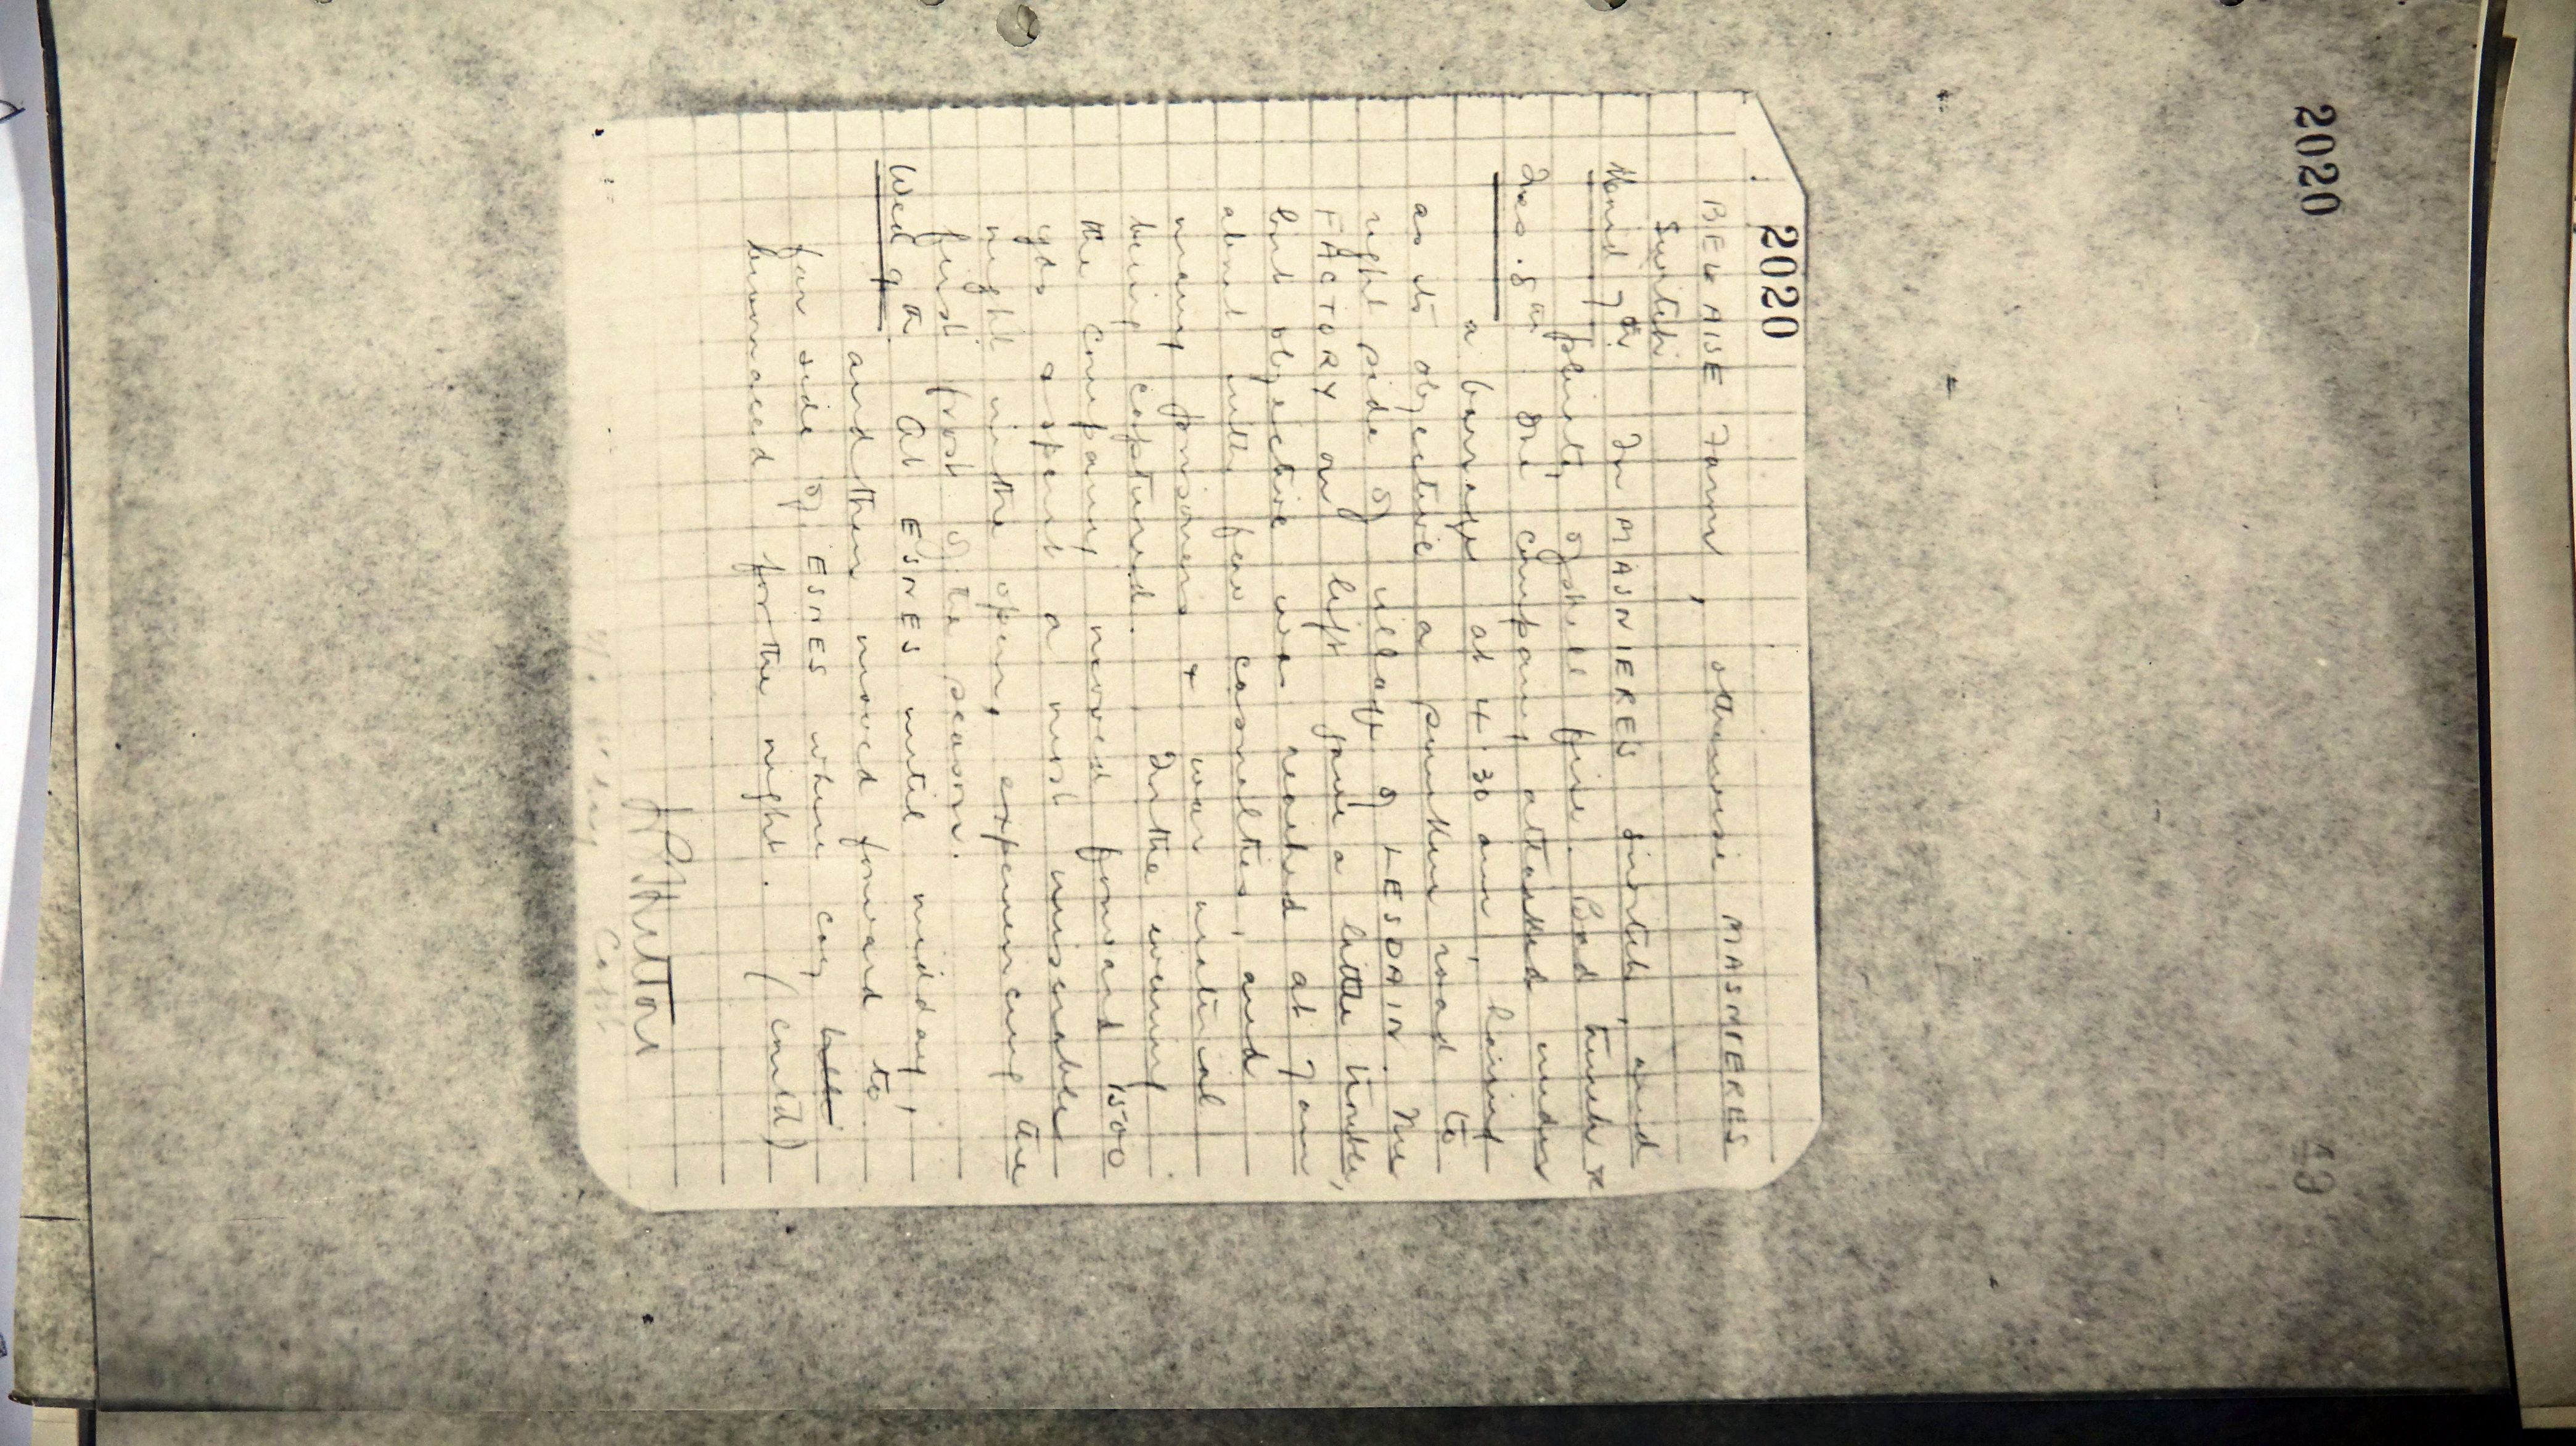 2020
2020
BEL AISE Farm, otherwise MASNIERES
Switch
Mond 7th In MASNIERES switch, and
plenty of shell fire. Bad trench &
Tues. 8th. The company attacked under
a barrage at 4.30 am, having
as its objective a sunken road to
right side of village of LESDAIN. The
FACTORY on left gave a little trouble,
but objective was reached at 7 am
about with few casualties, and
many prisoners & war material
being captured. In the evening
the company moved forward 1500
yds & spent a most miserable
night in the open, experiencing the
first frost of the season.
Wed 9th. At ESNES until midday,
and then moved forward to
far side of ESNES where coy
bivouaced for the night. (contd)
Hutton
Capt
49